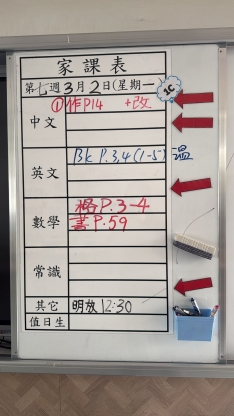 家課表
第七週3月2日(星期一
1C
中文 ①作P14 +改
英文 Bk P.3,4(1-5)-溫
數學 P.3-4
書P.59
常識
其它 明放12:30
值日生